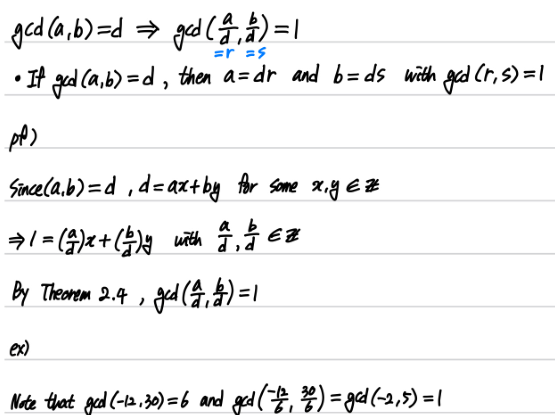 gcd(a,b)=d ⇒ gcd(a/d, b/d)=1
=r =s
• If gcd(a,b)=d, then a=dr and b=ds with gcd(r,s)=1
pf)
Since(a,b)=d, d=ax+by for some x,y∈ℤ
⇒1=(a/d)x+(b/d)y with a/d, b/d ∈ℤ
By Theorem 2.4, gcd(a/d, b/d)=1
ex)
Note that gcd(-12,30)=6 and gcd(-12/6, 30/6)=gcd(-2,5)=1